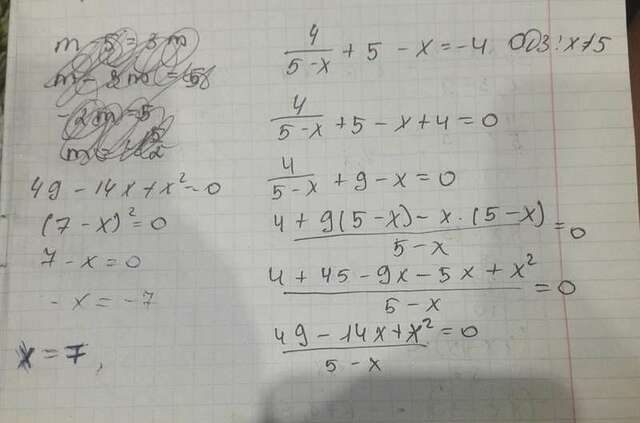 4/(5-x) + 5 - x = -4 ОДЗ: x≠5
4/(5-x) + 5 - x + 4 = 0
4/(5-x) + 9 - x = 0
(4 + 9(5-x) - x·(5-x))/(5-x) = 0
(4 + 45 - 9x - 5x + x²)/(5-x) = 0
(49 - 14x + x²)/(5-x) = 0
49 - 14x + x² = 0
(7 - x)² = 0
7 - x = 0
-x = -7
x = 7,